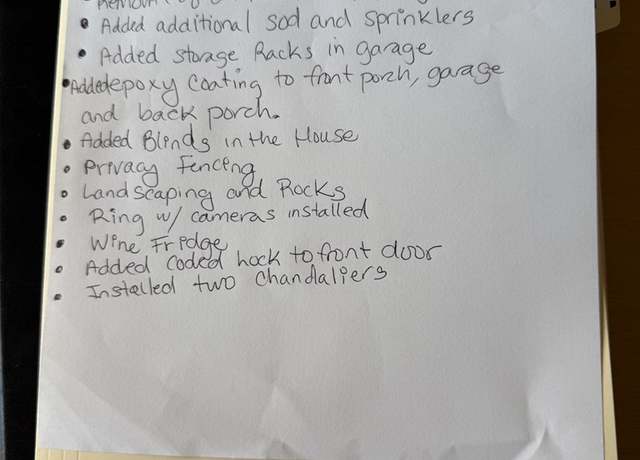 • Added additional sod and sprinklers
• Added storage Racks in garage
• Added epoxy coating to front porch, garage
and back porch.
• Added Blinds in the House
• Privacy Fencing
• Landscaping and Rocks
• Ring w/ cameras installed
• Wine Fridge
• Added coded hock to front door
• Installed two chandaliers